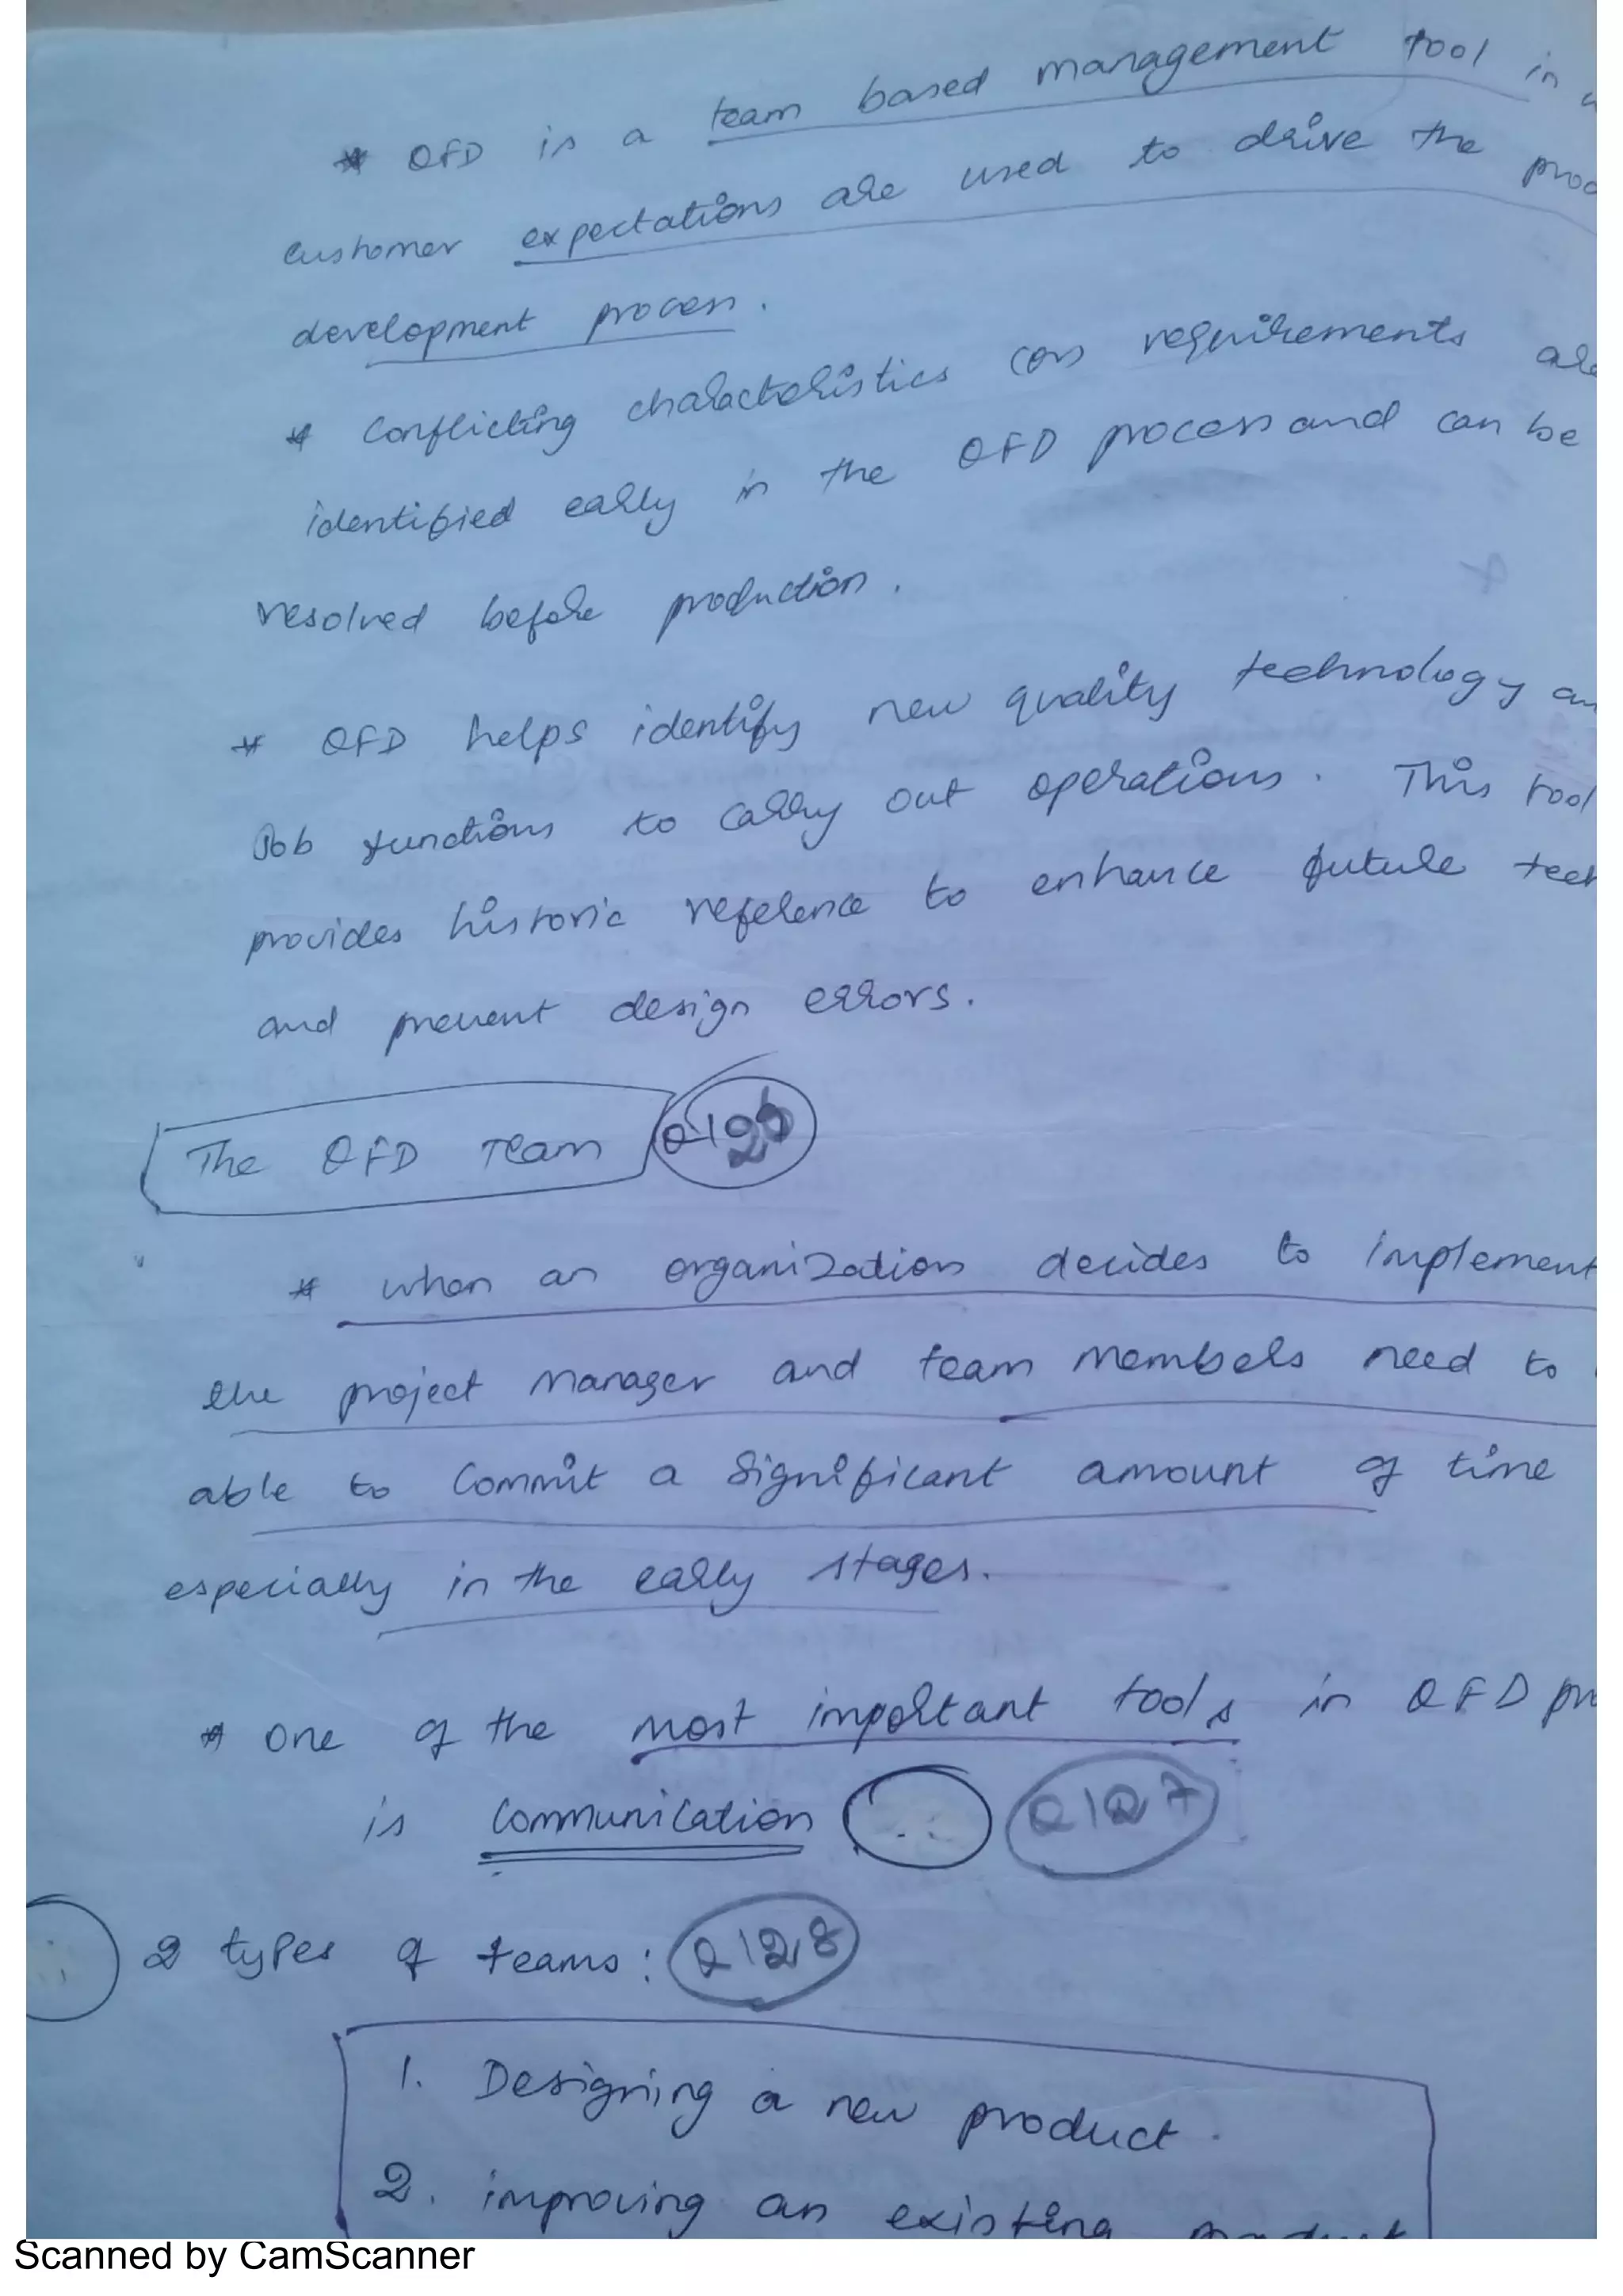 * QFD is a team based management tool in
customer expectations are used to drive the
development process.
* Conflicting characteristics (or) requirements are
identified early in the QFD process and can be
resolved before production.
* QFD helps identify new quality technology
Job functions to carry out operations. This tool
provides historic reference to enhance future
and prevent design errors.
The QFD Team Q126
* when an organization decides to implement
the project manager and team members need to
able to commit a significant amount of time
especially in the early stages.
* One of the most important tools in QFD
is Communication Q127
2 types of teams: Q128
1. Designing a new product.
2. improving an existing product
Scanned by CamScanner